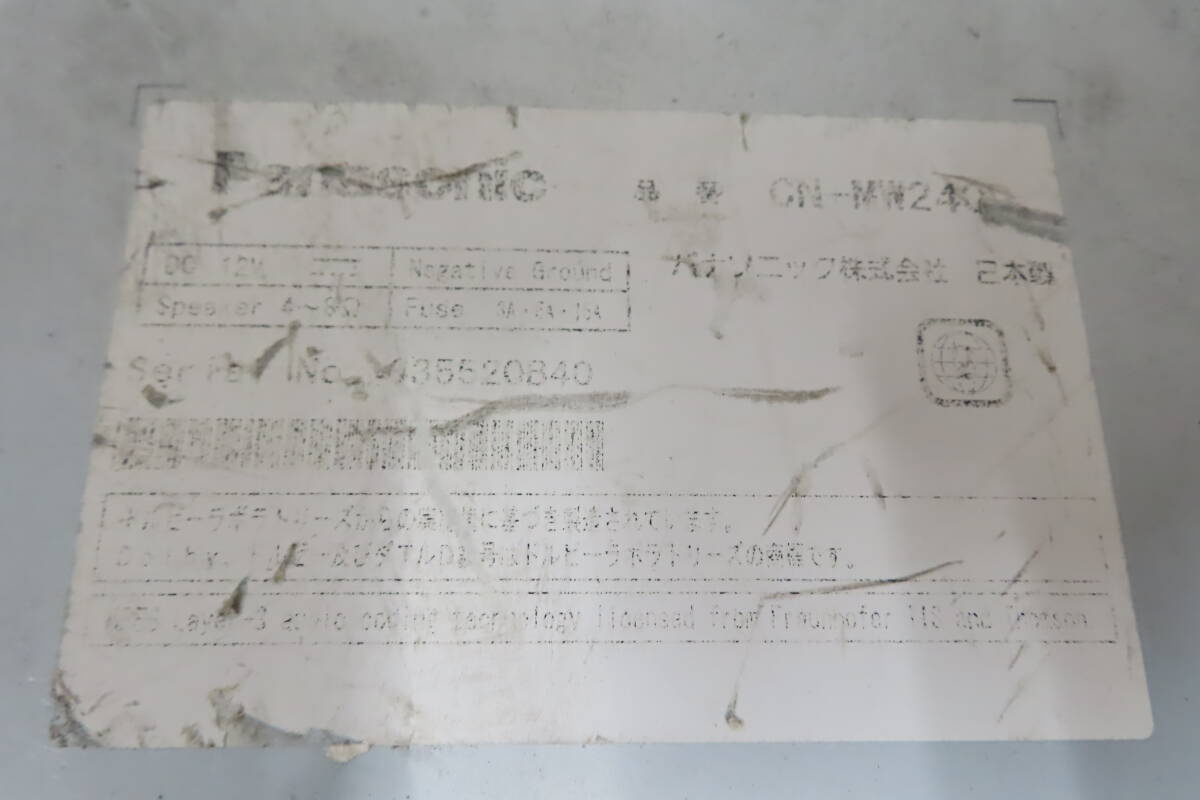 Panasonic
品番 CN-MW24
DC 12V Negative Ground
Speaker 4~8Ω Fuse 3A・5A・15A
パナソニック株式会社 日本製
Serial No. 35520840
ドルビーラボラトリーズからの実施権に基づき製造されています。
Dolby、ドルビー及びダブルD記号はドルビーラボラトリーズの商標です。
MPEG Layer-3 audio coding technology licensed from Fraunhofer IIS and Thomson